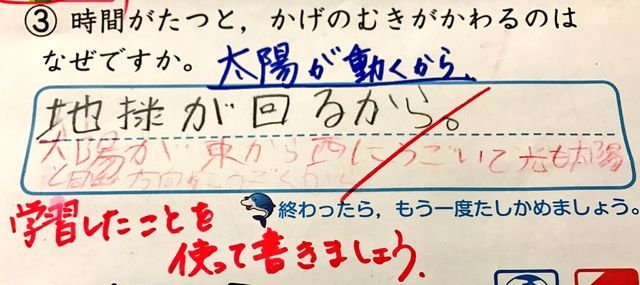 ③ 時間がたつと，かげのむきがかわるのは
なぜですか。 太陽が動くから、
地球が回るから。
太陽が東から西にうごいて光も太陽
と同
学習したことを
終わったら，もう一度たしかめましょう。
使って書きましょう。